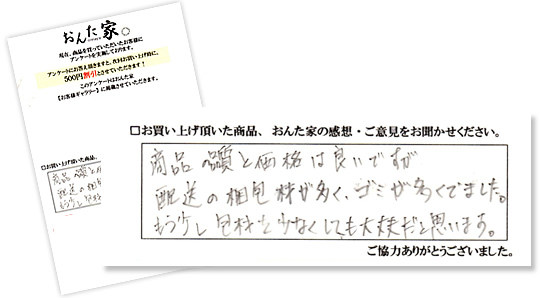 おんた家。
現在、商品を買っていただいたお客様に
アンケートを実施しております。
アンケートにお答え頂きますと、次回お買い上げ時に、
500円割引とさせていただきます！
このアンケートはおんた家
【お客様ギャラリー】に掲載させていただきます。
□お買い上げ頂いた商品、
商品の質と価
配送の梱包
もう少し包材
□お買い上げ頂いた商品、おんた家の感想・ご意見をお聞かせください。
商品の質と価格は良いですが
配送の梱包材が多く、ゴミが多くでました。
もう少し包材を少なくしても大丈夫だと思います。
ご協力ありがとうございました。